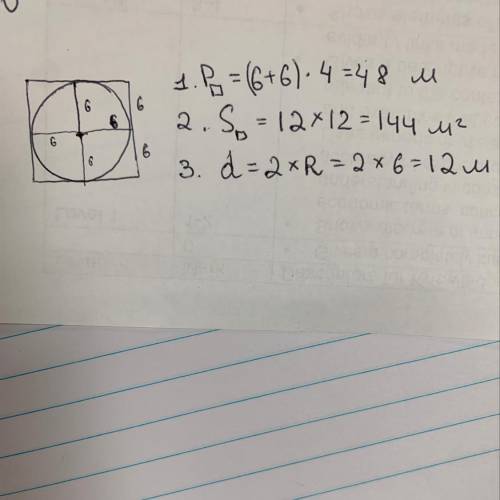 6 6
6 6
6 6
1. P□ = (6+6) · 4 = 48 м
2. S□ = 12 × 12 = 144 м²
3. d = 2 × R = 2 × 6 = 12 м